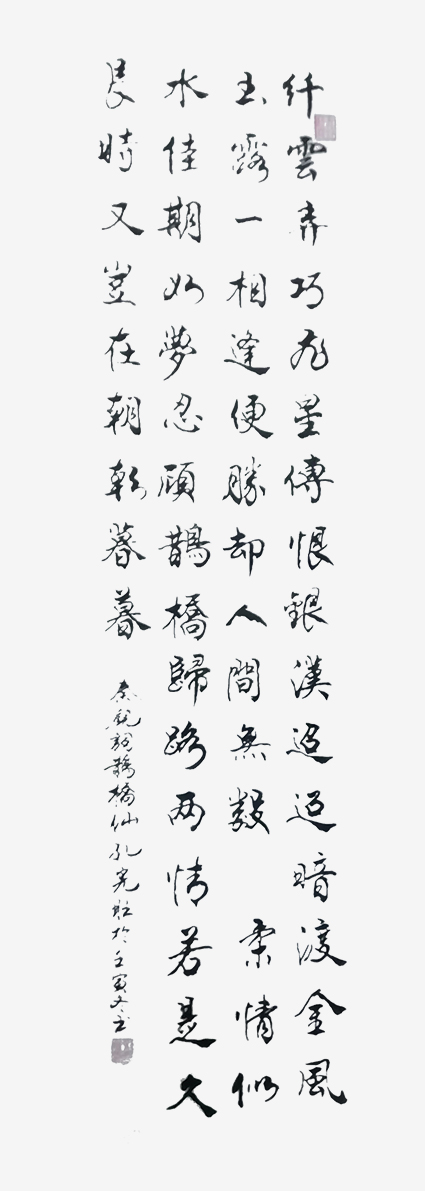 纤雲弄巧飛星傳恨銀漢迢迢暗渡金風
玉露一相逢便勝却人間無數 柔情似
水佳期如夢忍顧鵲橋歸路两情若是久
長時又豈在朝朝暮暮
秦觀詞鵲橋仙孔於壬寅冬